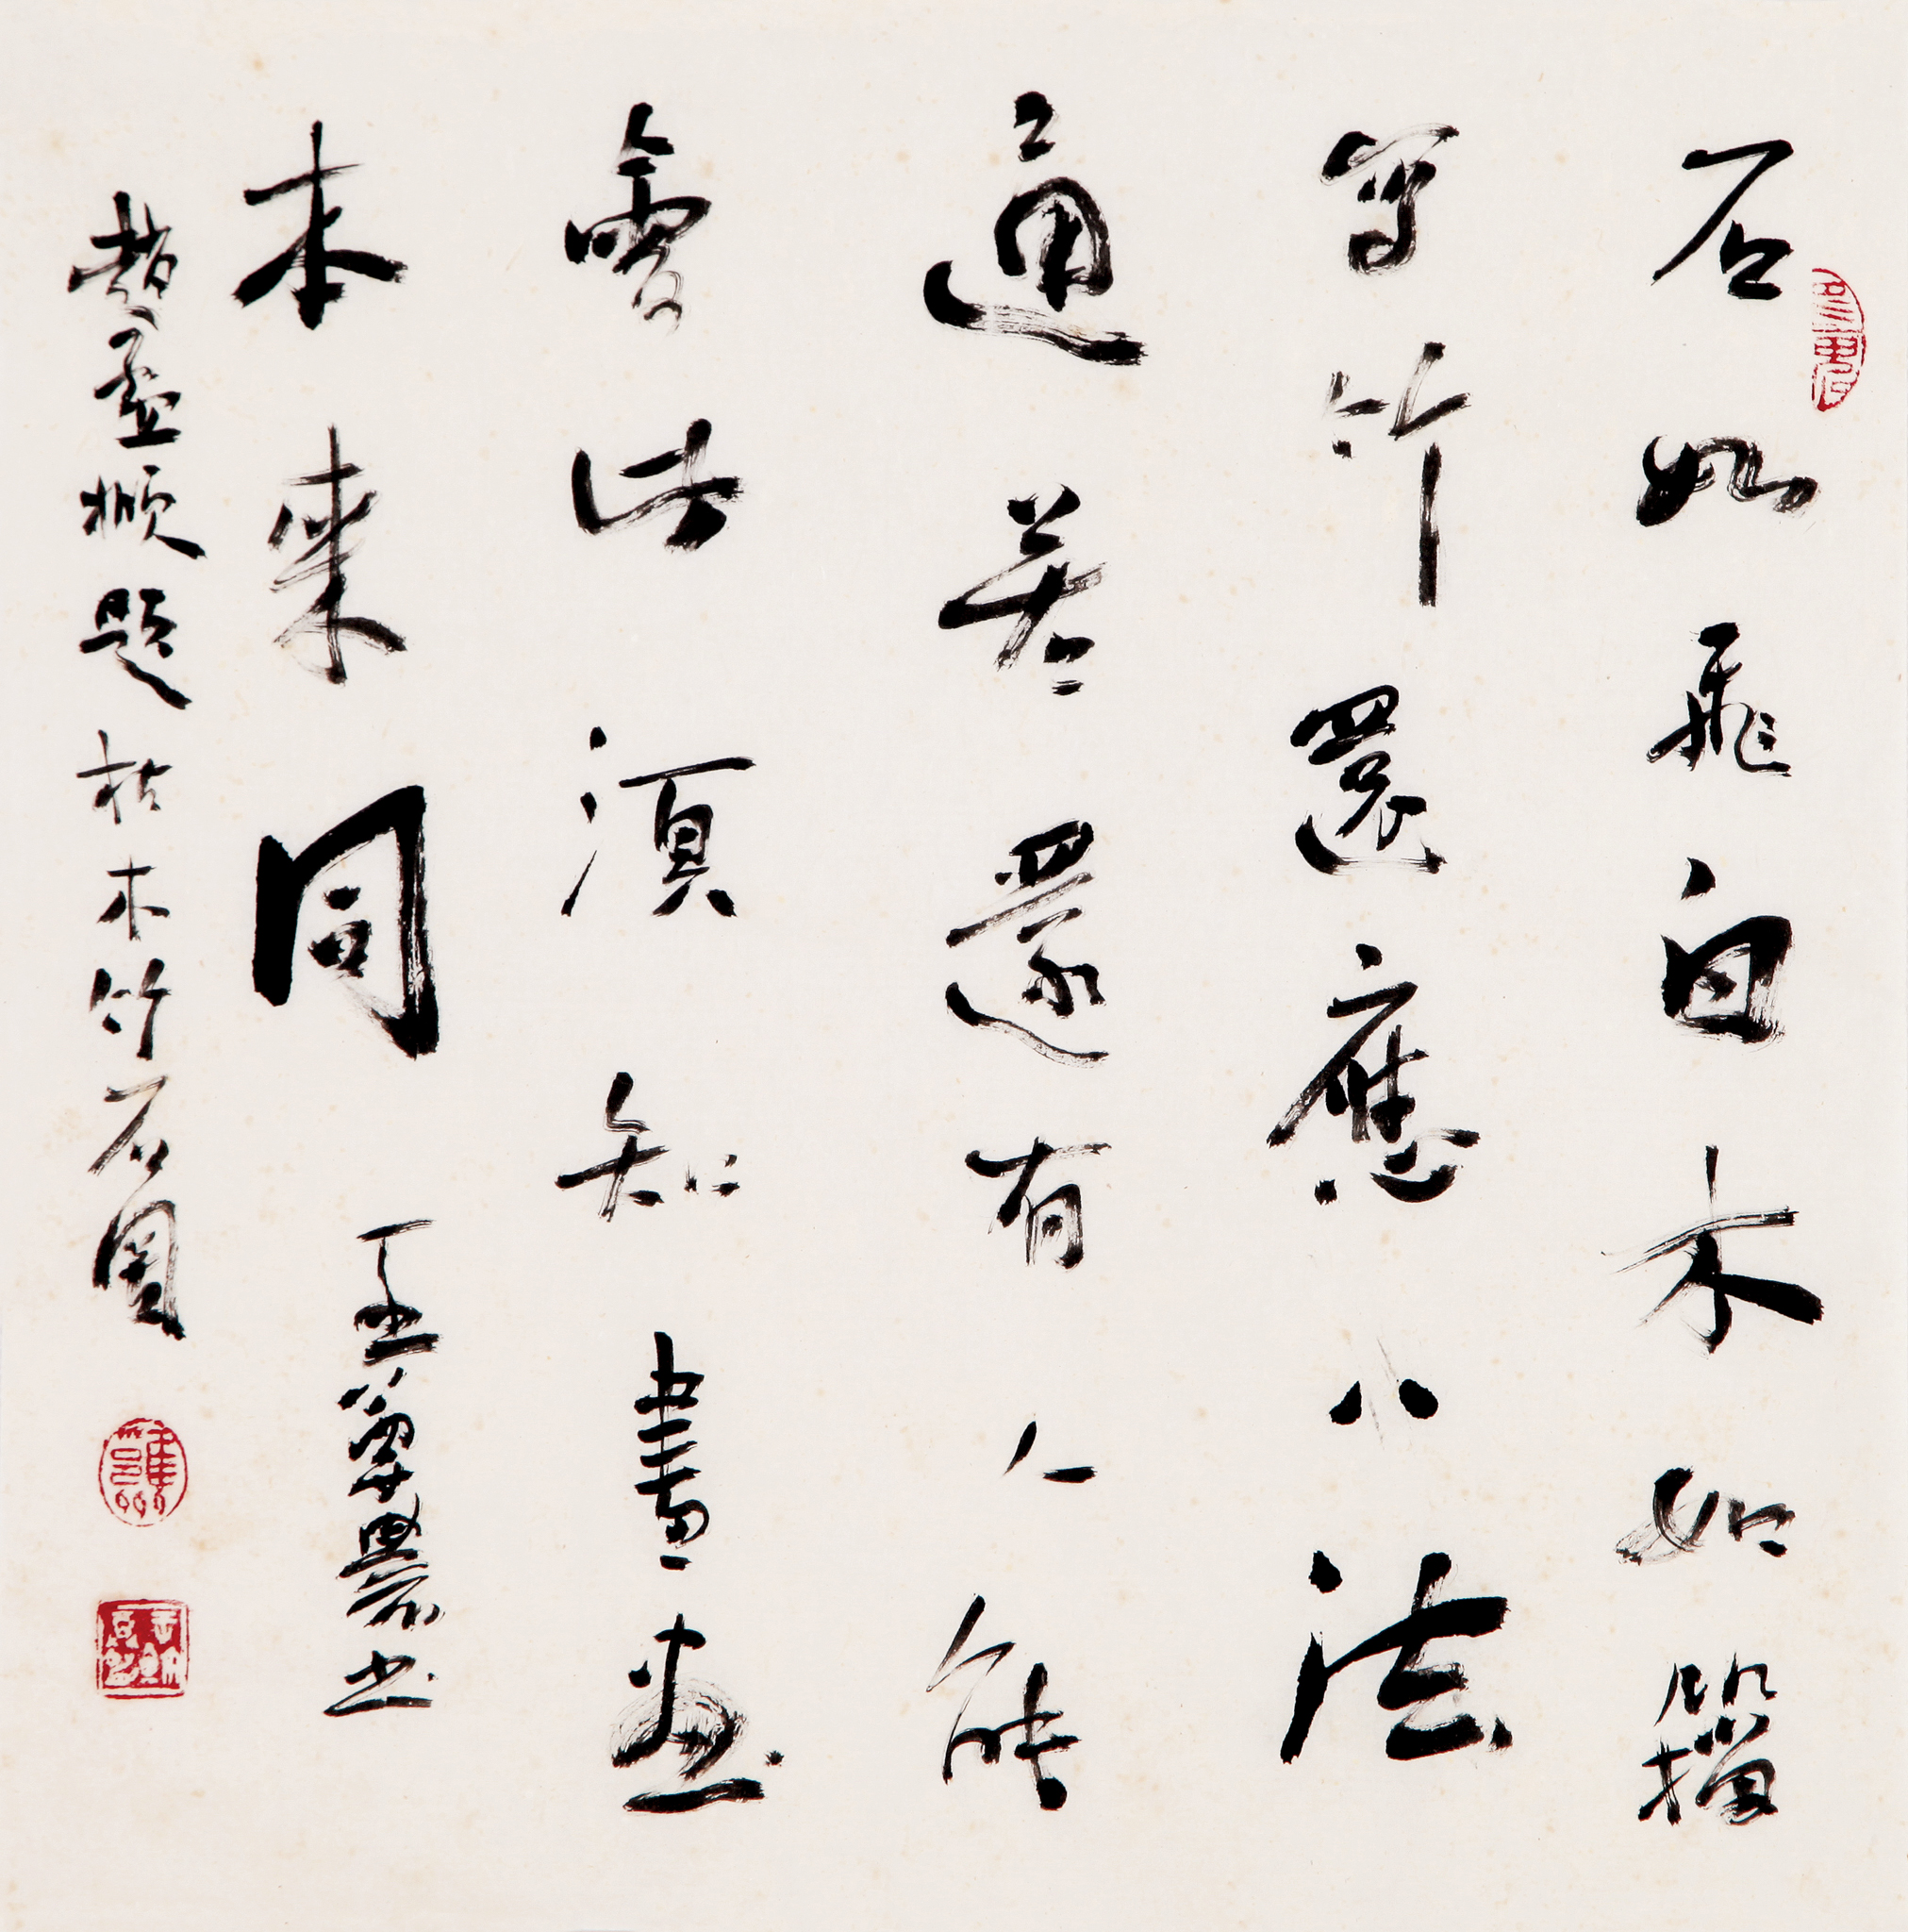 石如飛白木如籀
寫竹還應八法
通若還有人能
會此湏知書畫
本來同 书
趙孟頫題枯木竹石圖